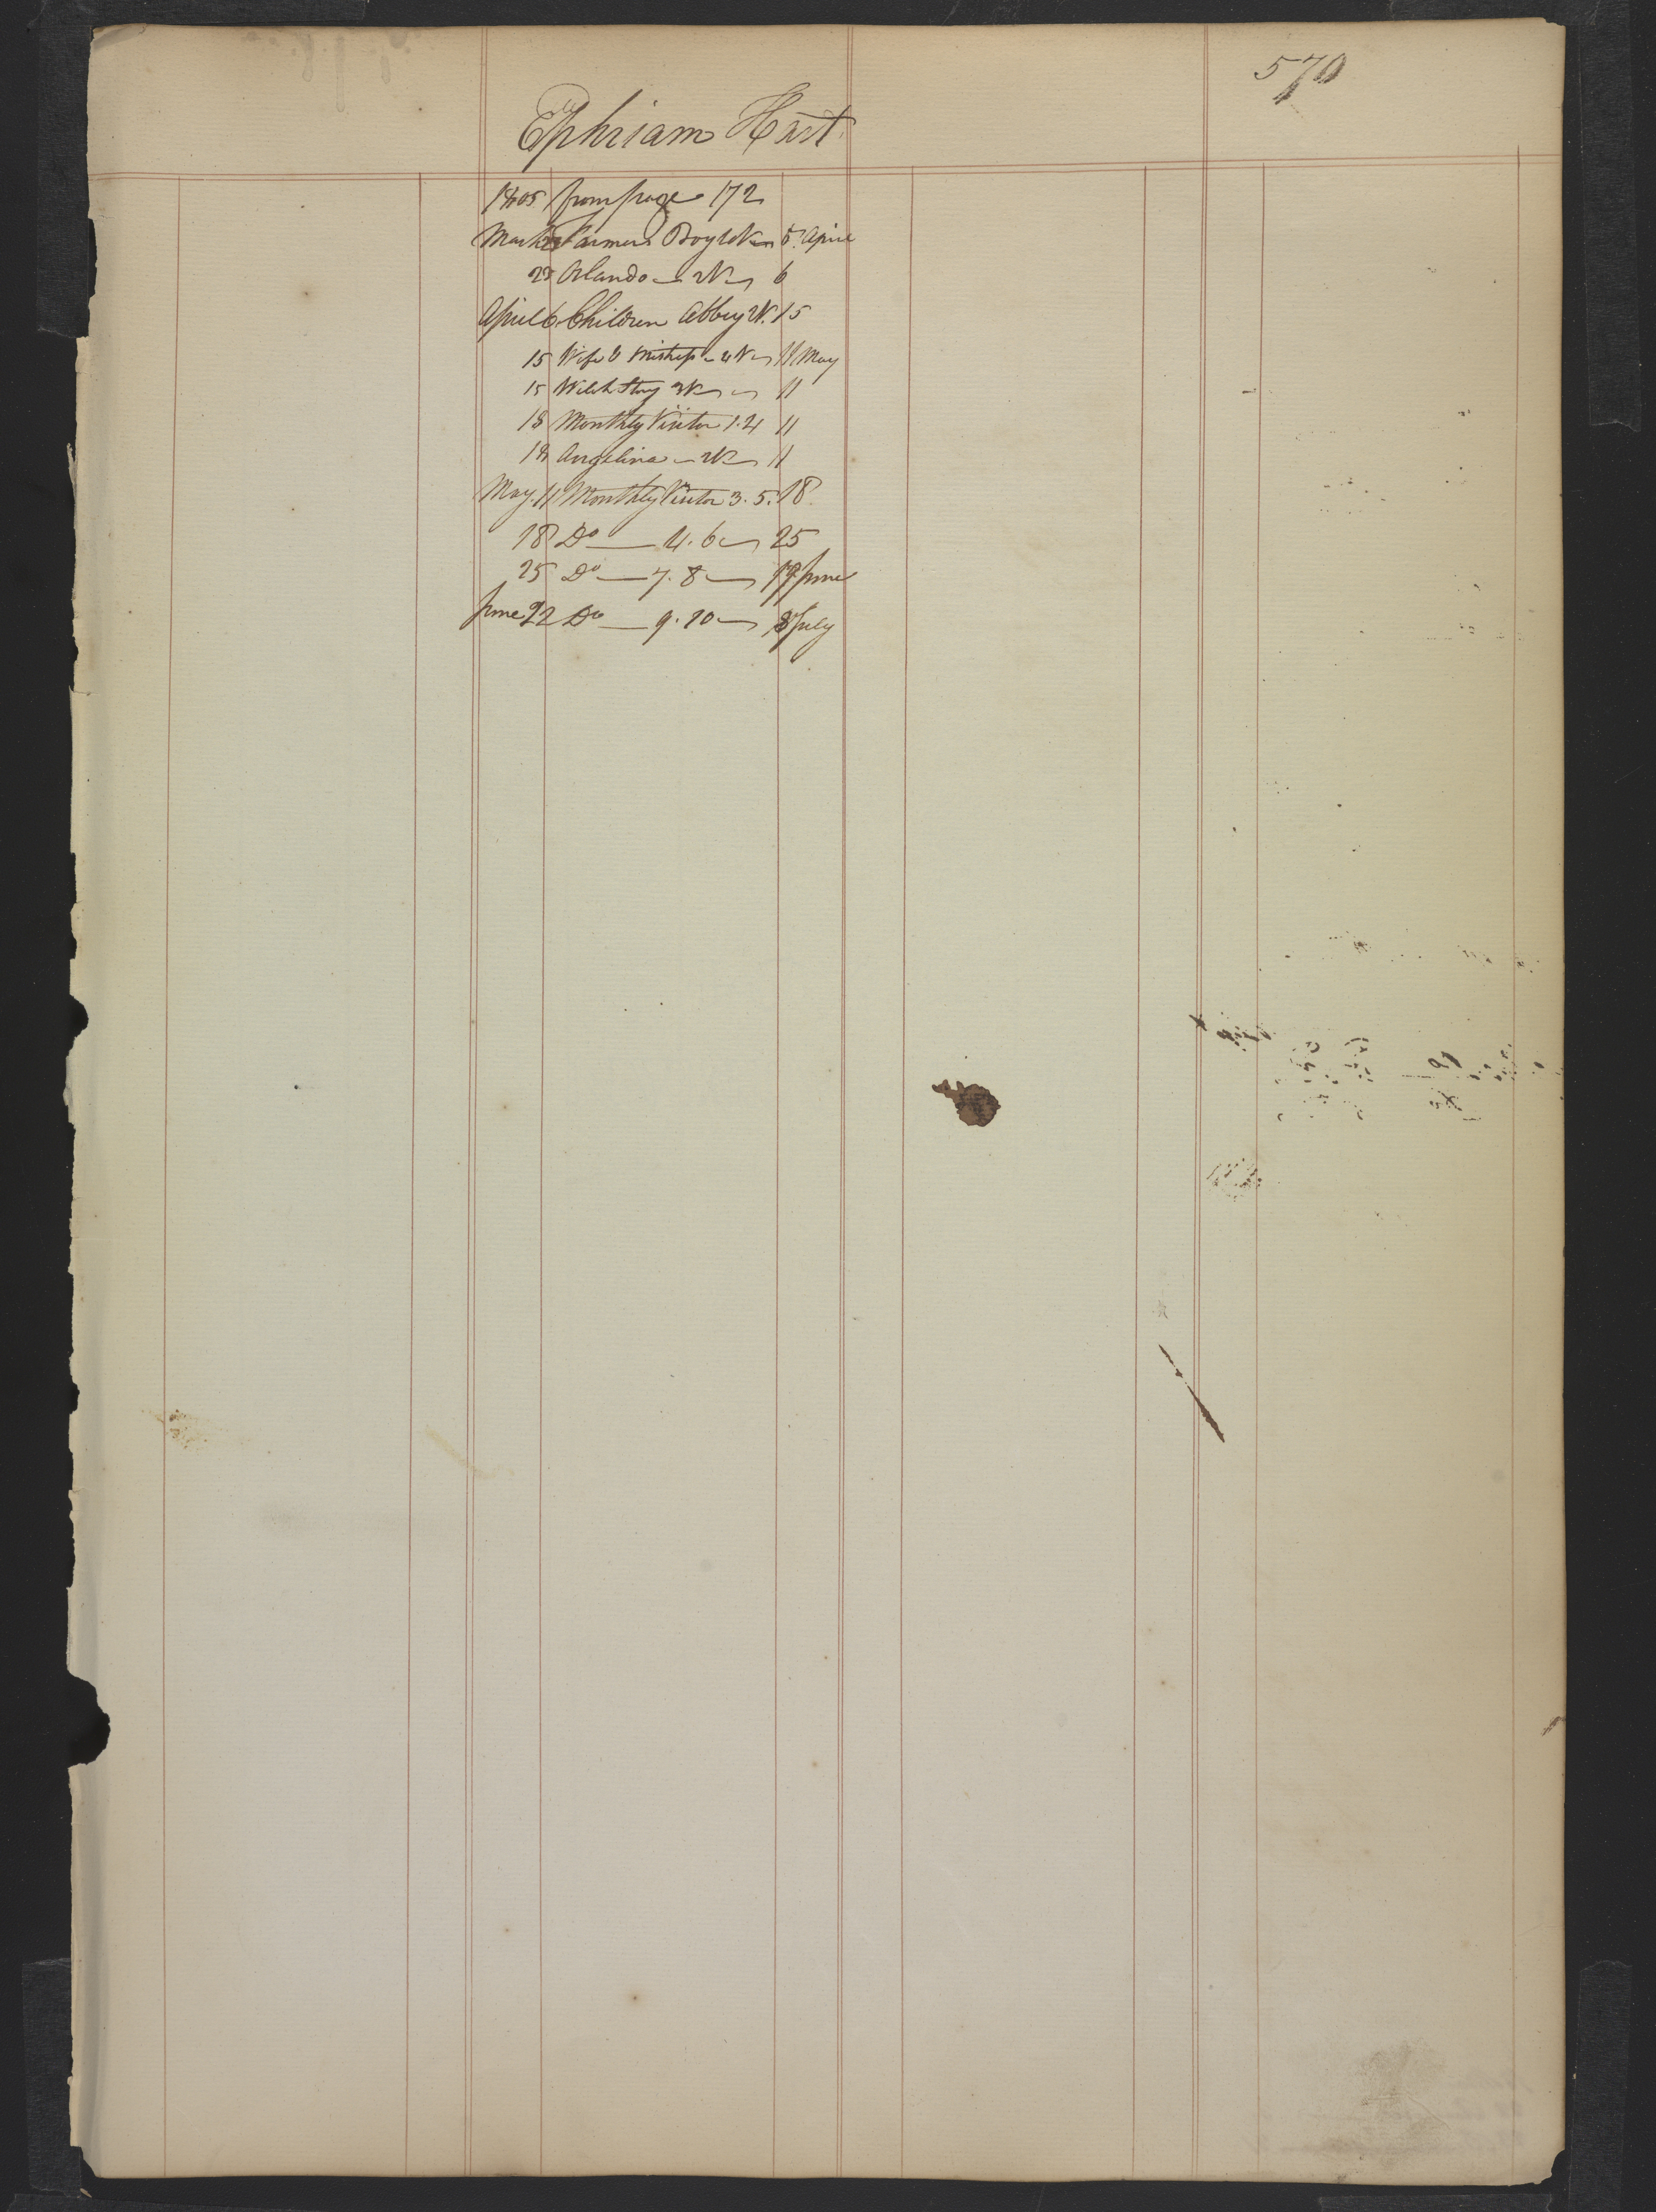 570
Ephriam Hart
1805 from page 172
March 23 Farmers Boy W 5. April
23 Orlando W 6
April 6 Children Abbey W. 15
15 Wife & Mistress 4 V 11 May
15 Welch Story W 11
18 Monthly Visitor 1.2 11
18 Angelina W 11
May. 11 Monthly Visitor 3. 5. 18
18 Do 4. 6 25
25 Do 7. 8 17 June
June 22 Do 9. 10 8 July